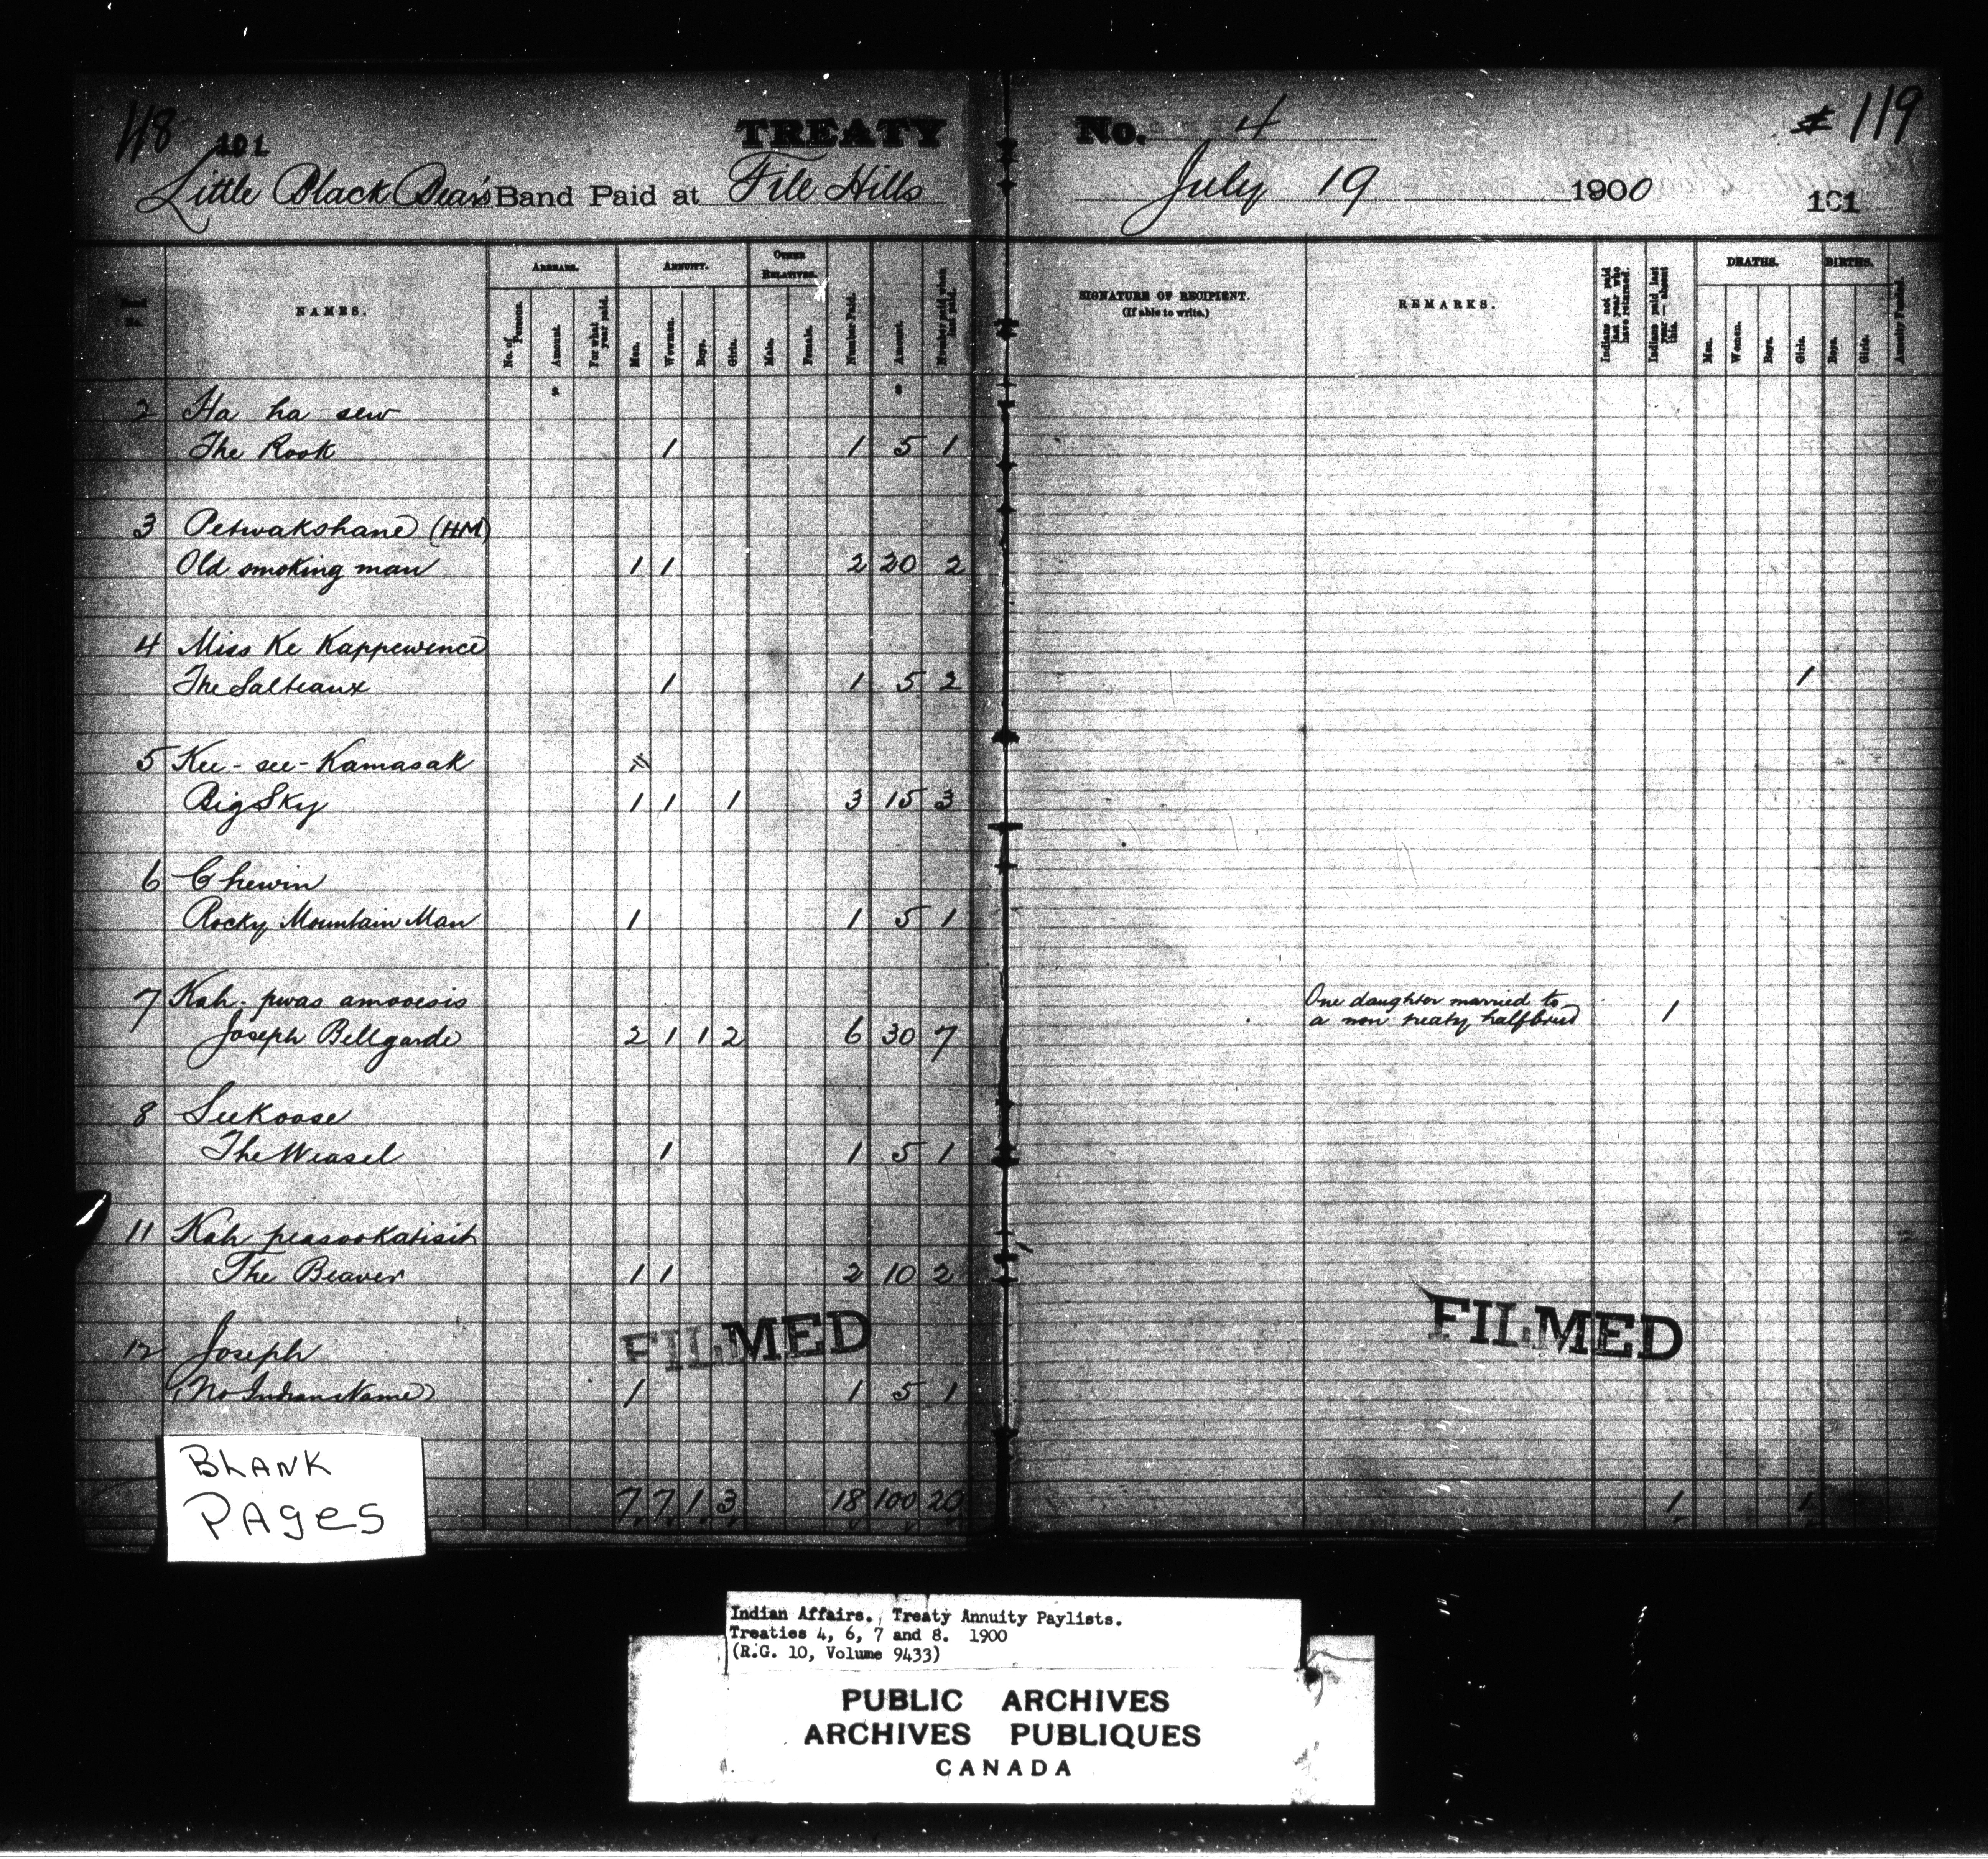 118 101 TREATY No. 4 119
Little Black Bear's Band Paid at File Hills July 19 1900 101
NAMES.
ARREARS.
No. of Persons.
Amount.
For what year paid.
ANNUITY.
Men.
Women.
Boys.
Girls.
OTHER RELATIVES.
Male.
Female.
Number Paid.
Amount.
Number paid when last paid.
SIGNATURE OF RECIPIENT.
(If able to write.)
REMARKS.
Indians not paid last year who have returned.
Indians paid last year — absent this.
DEATHS.
Men.
Women.
Boys.
Girls.
BIRTHS.
Boys.
Girls.
2 Ha ha sew
The Rook 1 1 5 1
3 Petwakshane (HM)
Old smoking man 1 1 2 20 2
4 Miss Ke Kappewence
The Salteaux 1 1 5 2 1
5 Kee-see-Kamasak
Big Sky 1 1 1 3 15 3
6 Chewin
Rocky Mountain Man 1 1 5 1
7 Kah-pwas amooesis One daughter married to 1
Joseph Bellgarde 2 1 1 2 6 30 7 a non treaty halfbreed
8 SeeKoose
The Weasel 1 1 5 1
11 Kah peasookatisit
The Beaver 1 1 2 10 2
FILMED FILMED
12 Joseph
(No Indian Name) 1 1 5 1
BLANK
PAges
7 7 1 3 18 100 20 1 1
Indian Affairs. Treaty Annuity Paylists.
Treaties 4, 6, 7 and 8. 1900
(R.G. 10, Volume 9433)
PUBLIC ARCHIVES
ARCHIVES PUBLIQUES
CANADA